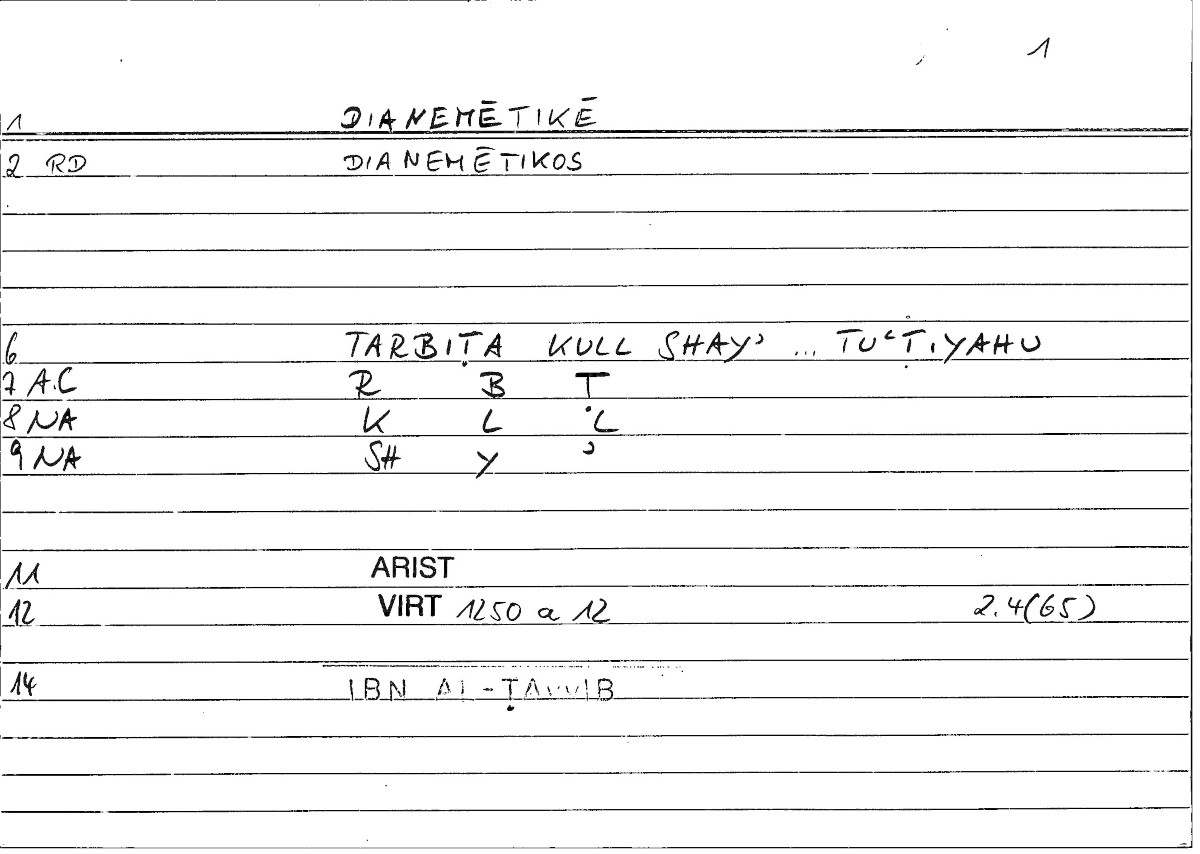 1
1 DIANEMĒTIKĒ
2 RD DIANEMĒTIKOS
6 TARBIṬA KULL SHAYʾ ... TUʿṬIYAHU
7 A.C R B Ṭ
8 NA K L L
9 NA SH Y ʾ
11 ARIST
12 VIRT 1250 a 12 2.4(65)
14 IBN AL-ṬAYYIB